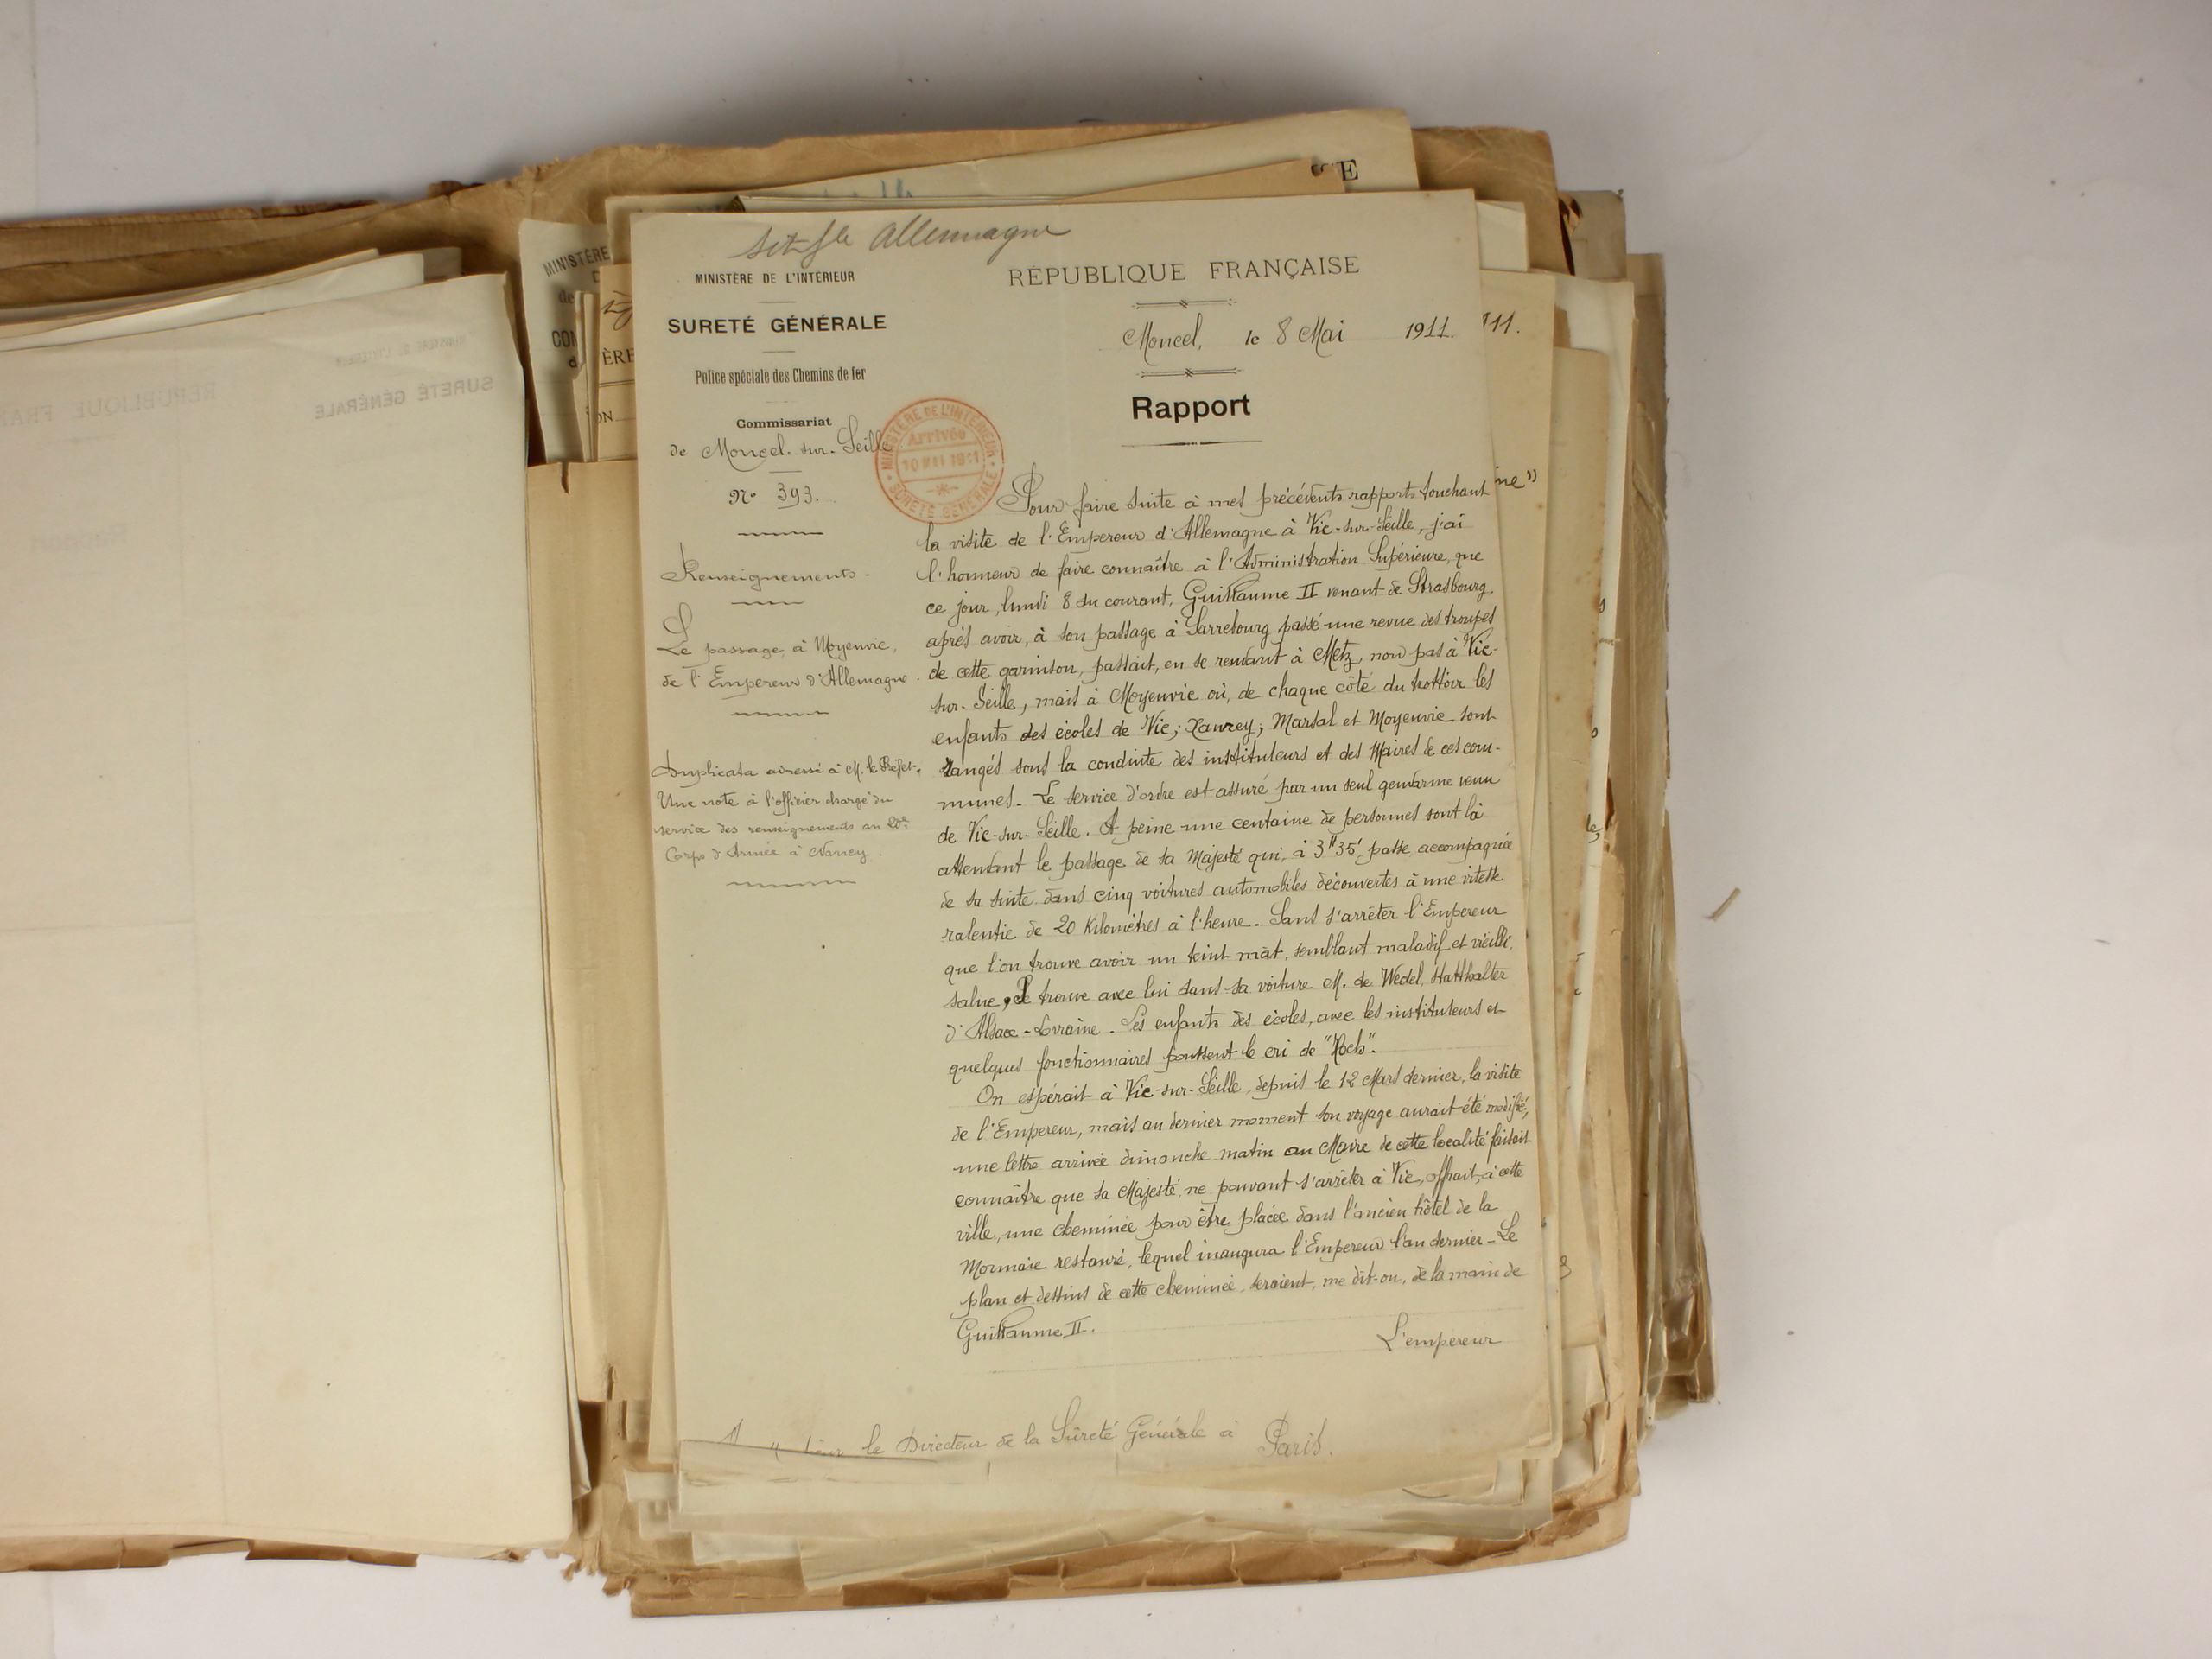 Allemagne
MINISTÈRE DE L'INTÉRIEUR
SURETÉ GÉNÉRALE
Police spéciale des Chemins de fer
Commissariat
de Moncel-sur-Seille
No 393.
MINISTÈRE DE L'INTÉRIEUR
Arrivée
10 MAI 1911
SURETÉ GÉNÉRALE
Renseignements.
Le passage, à Moyenvic,
de l'Empereur d'Allemagne.
Duplicata adressé à M. le Préfet.
Une note à l'officier chargé du
service des renseignements au 20e
Corps d'Armée à Nancy.
RÉPUBLIQUE FRANÇAISE
Moncel, le 8 Mai 1911.
Rapport
Pour faire suite à mes précédents rapports touchant
la visite de l'Empereur d'Allemagne à Vic-sur-Seille, j'ai
l'honneur de faire connaître à l'Administration Supérieure, que
ce jour, lundi 8 du courant, Guillaume II venant de Strasbourg
après avoir, à son passage à Sarrebourg passé une revue des troupes
de cette garnison, passait, en se rendant à Metz, non pas à Vic-
sur-Seille, mais à Moyenvic où, de chaque côté du trottoir les
enfants des écoles de Vic; Xanrey; Marsal et Moyenvic sont
rangés sous la conduite des instituteurs et des Maires de ces com-
munes. Le service d'ordre est assuré par un seul gendarme venu
de Vic-sur-Seille. A peine une centaine de personnes sont là
attendant le passage de sa Majesté qui, à 3h35', passe accompagnée
de sa suite dans cinq voitures automobiles découvertes à une vitesse
ralentie de 20 Kilomètres à l'heure. Sans s'arrêter l'Empereur
que l'on trouve avoir un teint mat, semblant maladif et vieilli,
salue, Se trouve avec lui dans sa voiture M. de Wedel, Statthalter
d'Alsace-Lorraine. Les enfants des écoles, avec les instituteurs et
quelques fonctionnaires poussent le cri de "Hoch".
On espérait à Vic-sur-Seille, depuis le 12 Mars dernier, la visite
de l'Empereur, mais au dernier moment son voyage aurait été modifié,
une lettre arrivée dimanche matin au Maire de cette localité faisait
connaître que sa Majesté, ne pouvant s'arrêter à Vic, offrait, à cette
ville, une cheminée pour être placée dans l'ancien hôtel de la
Monnaie restauré, lequel inaugura l'Empereur l'an dernier. Le
plan et dessins de cette cheminée seraient, me dit-on, de la main de
Guillaume II.
L'empereur
le Directeur de la Sûreté Générale à Paris.